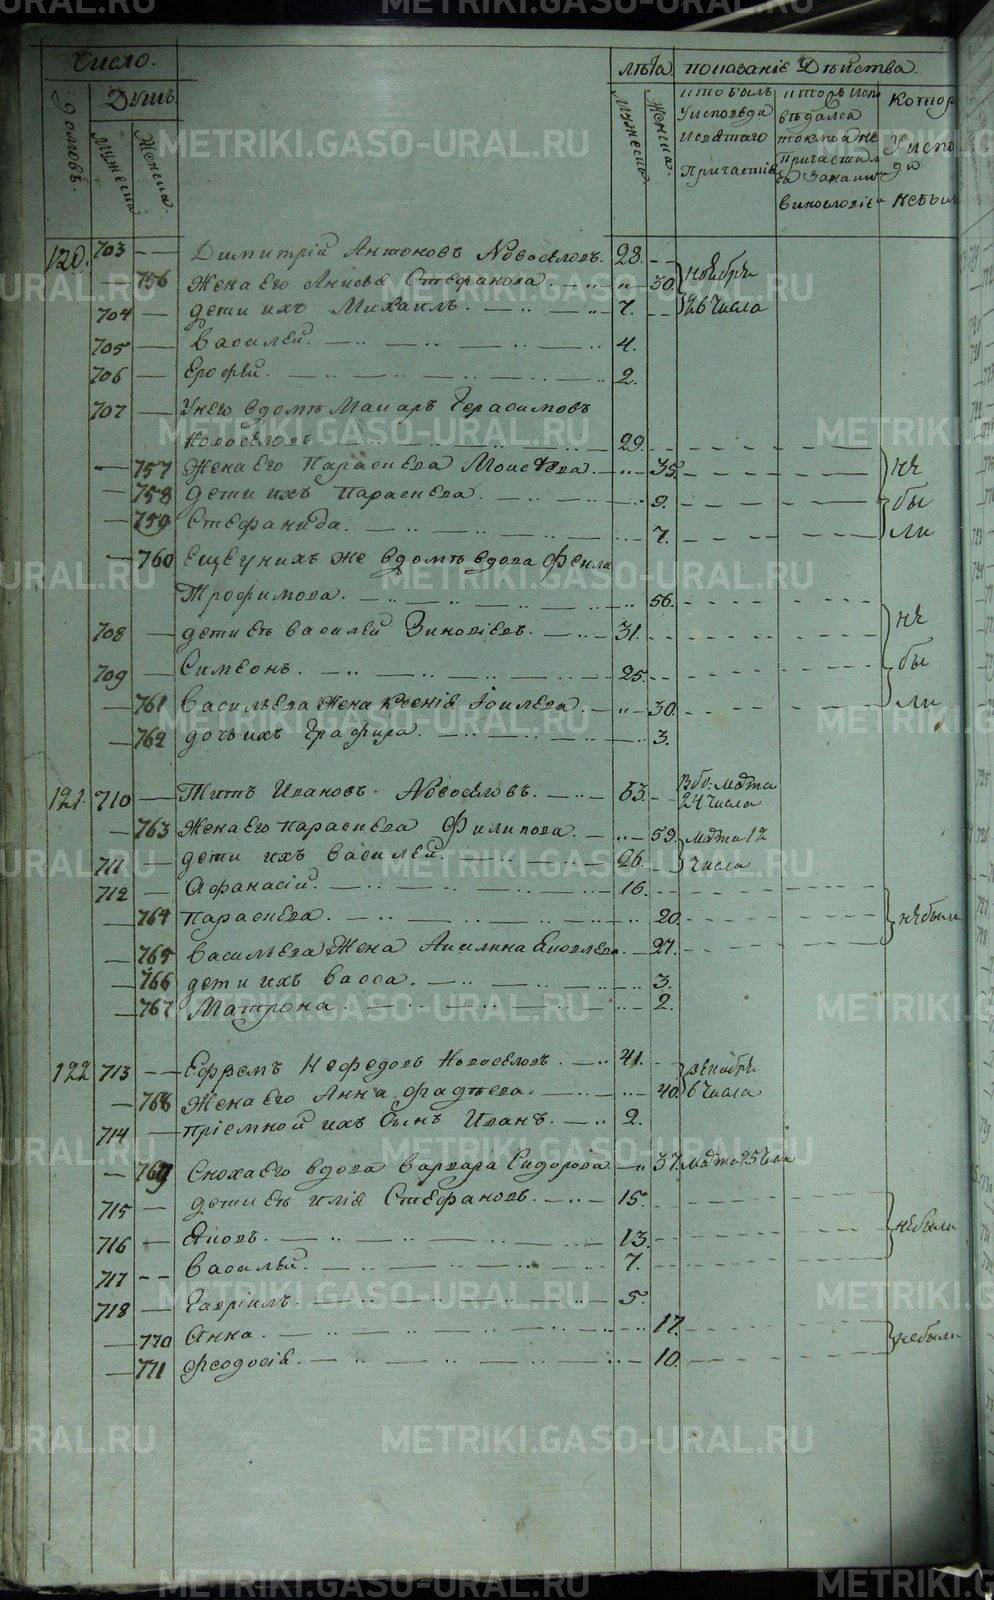 Число.
домовъ.
Душъ
мужеска
женска.
лѣта
мужеска
женска
показаніе Дѣйства
кто былъ
у исповеди
и святаго
причастіѧ
кто исп
вѣдался
токмо а не
причастил
ся за каки
винословіе
котор
у испо
ди
не был
120. 703 — Димитрій Антоновъ Новосѣловъ. 23. ноября
— 756 Жена его Анисьѧ Стефанова. 30.
704 — дети ихъ Михаилъ. 7. 26 числа
705 — Василей. 4.
706 — Ерофей. 2.
707 — у него вдомѣ Макаръ Герасимовъ
Новосѣловъ 29.
— 757 Жена его Параскева Моисѣева. 35. не
— 758 дети ихъ Параскева. 9. бы
— 759 Стефанида. 7. ли
— 760 еще у нихъ же вдомѣ вдова Фекла
Трофимова. 56.
708 — дети еѧ Василей Зиновіевъ. 31. не
709 — Симеонъ. 25. бы
— 761 Васильева жена Ксеніѧ Іоилева. 30. ли
— 762 дочь ихъ Графира. 3.
121. 710 — Титъ Ивановъ Новосѣловъ. 63. марта
24 числа
— 763 Жена его Параскева Филипова. 59. марта 12
711 — дети ихъ Василей. 26. числа
712 — Афанасій. 16.
— 764 Параскева. 20. не были
— 765 Васильева Жена Акилина Яковлева. 27.
— 766 дети ихъ Васса. 3.
— 767 Матрона. 2.
122 713 — Ефремъ Нефедовъ Новосѣловъ. 41. декабря
— 768 Жена его Анна Фадѣева. 40. 6 числа
714 — пріемной ихъ сынъ Иванъ. 2.
— 769 Сноха его вдова Варвара Сидорова 37. марта 25 числа
715 — дети еѧ Иліѧ Стефановъ. 15.
716 — Яковъ. 13. не были
717 — Василей. 7.
718 — Гавріилъ. 5.
— 770 Анна. 17. не были
— 771 Феодосіѧ. 10.
METRIKI.GASO-URAL.RU